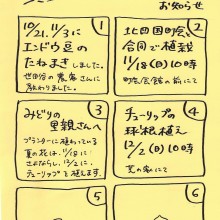 お知らせ
①
10/21. 11/3に
エンドウ豆の
たねまきしました。
世田谷の農家さんに
教わりました。
②
北四国町会
合同で植栽
11/18(日)10時
町会会館の前にて
③
みどりの
里親さんへ
プランターに植わっている
夏の花は、11/18に
さよならし、12/2に
チューリップを植えます。
④
チューリップの
球根植え
12/2(日)10時
⑤
⑥